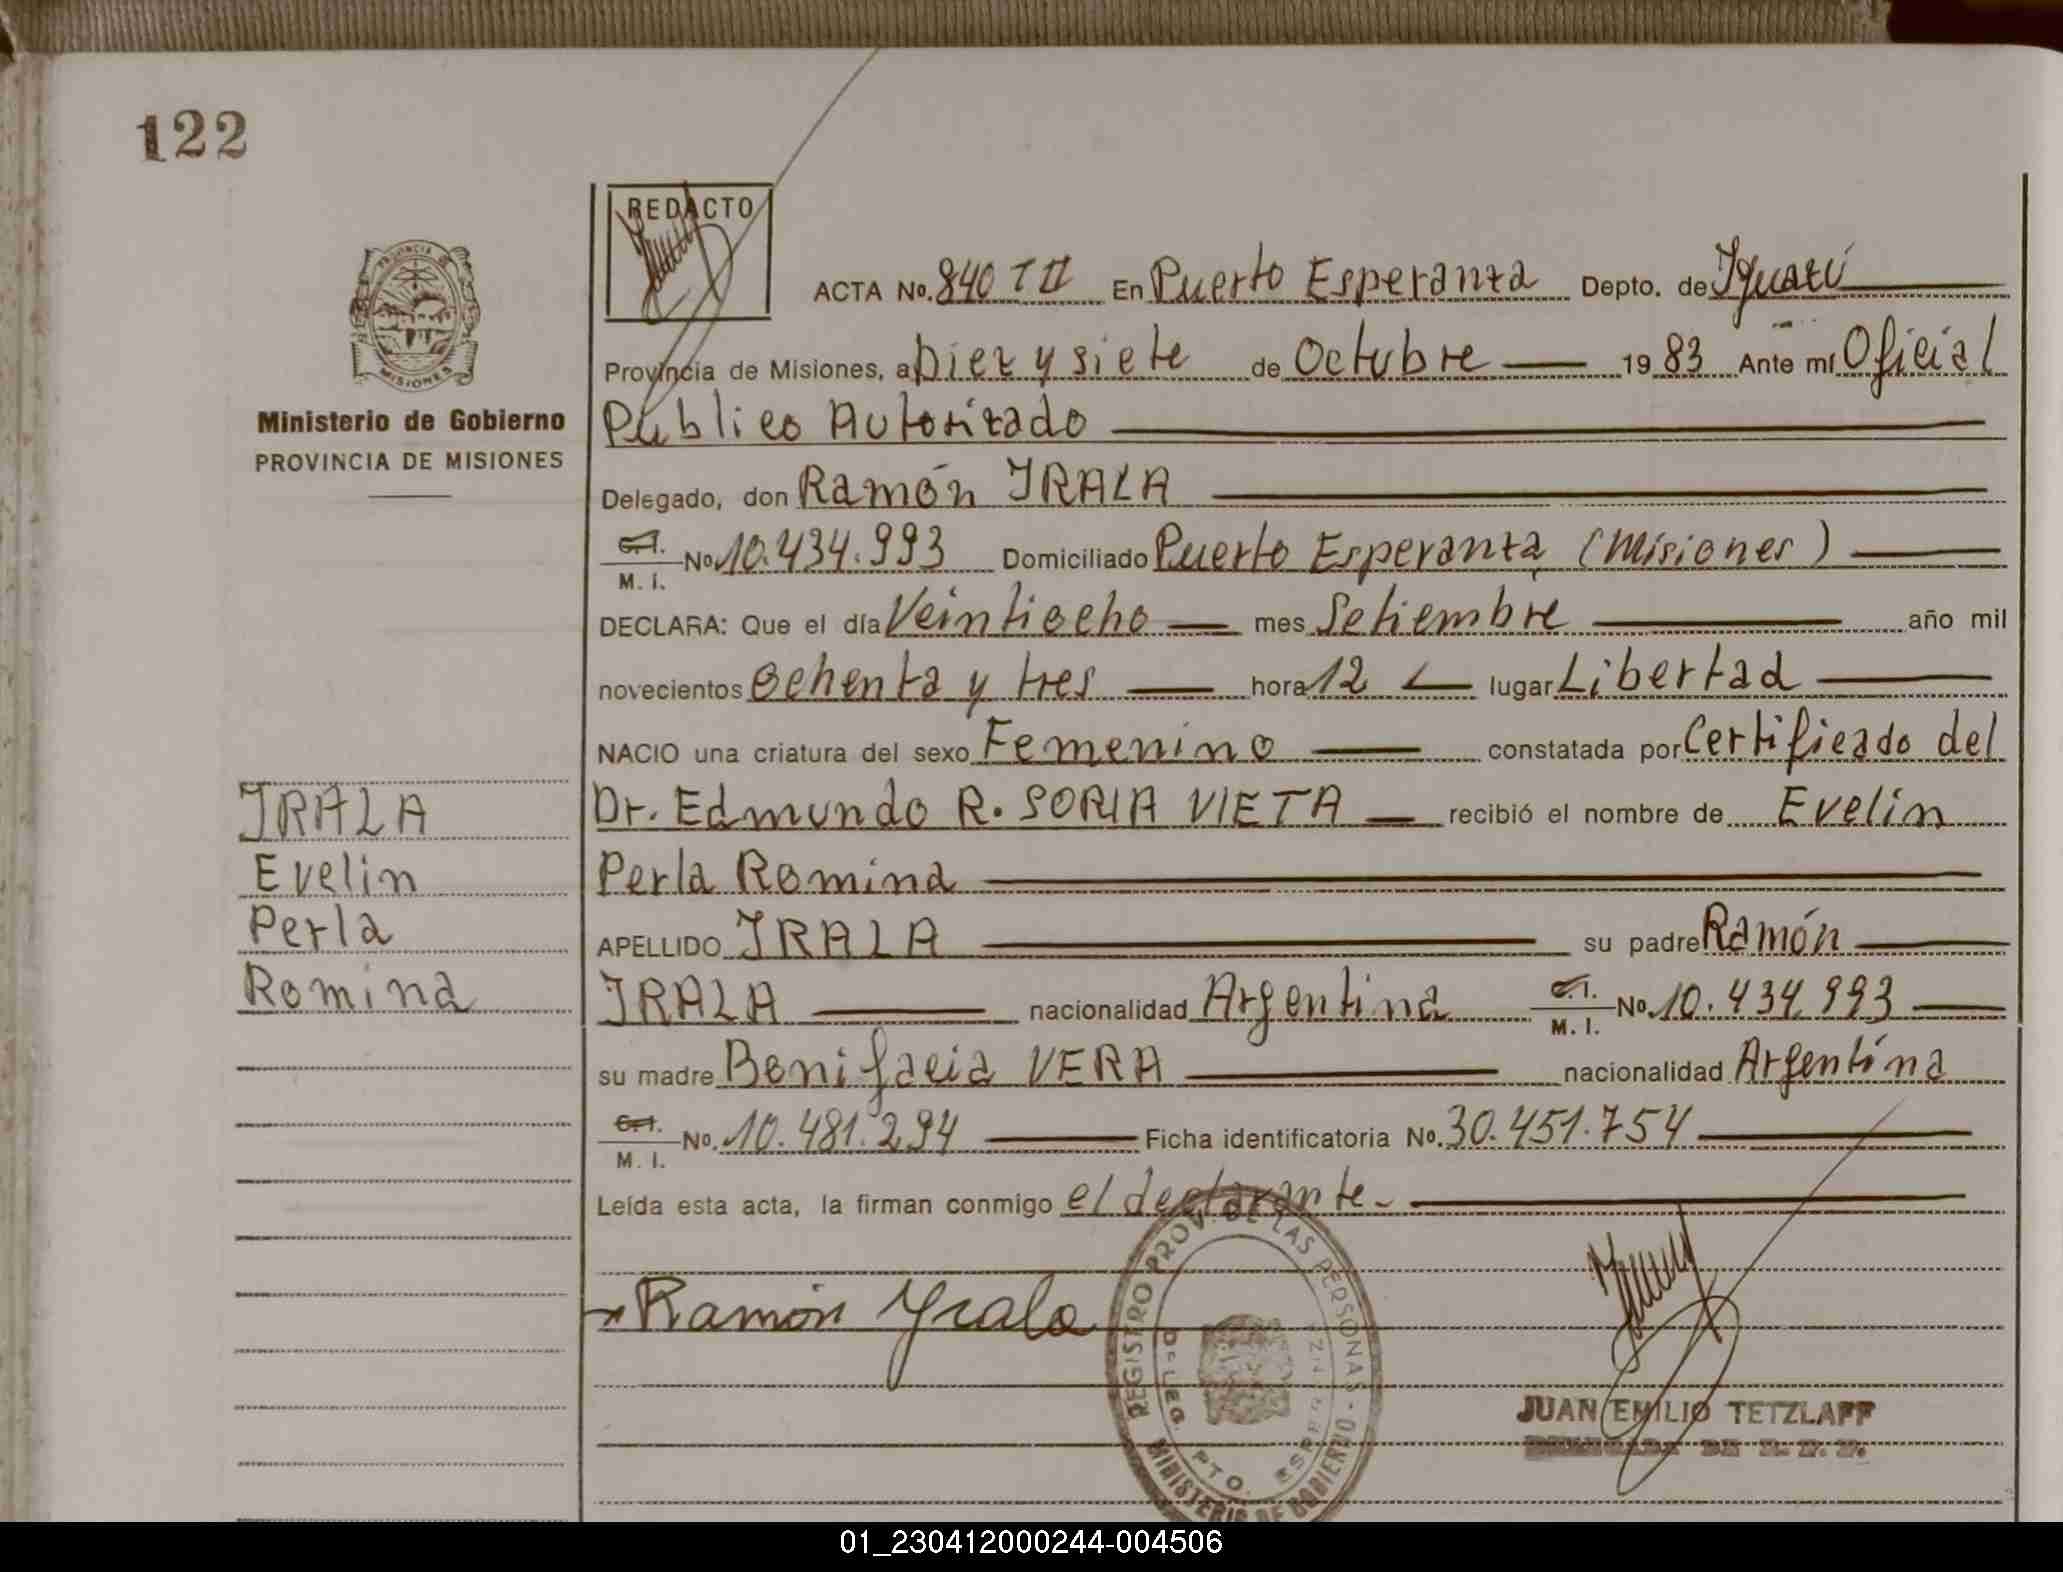 122
REDACTO
PROVINCIA DE
MISIONES
Ministerio de Gobierno
PROVINCIA DE MISIONES
ACTA No. 840 T II En Puerto Esperanza Depto. de Iguazú
Provincia de Misiones, a Diez y siete de Octubre 1983 Ante mí Oficial
Público Autorizado
Delegado, don Ramón IRALA
C.I. M. I. No 10.434.993 Domiciliado Puerto Esperanza (Misiones)
DECLARA: Que el día Veintiocho mes Setiembre año mil
novecientos ochenta y tres hora 12 lugar Libertad
NACIO una criatura del sexo Femenino constatada por Certificado del
Dr. Edmundo R. SORIA VIETA recibió el nombre de Evelin
Perla Romina
APELLIDO IRALA su padre Ramón
IRALA nacionalidad Argentina C.I. M. I. No. 10.434.993
su madre Bonifacia VERA nacionalidad Argentina
C.I. M. I. No. 10.481.294 Ficha identificatoria No. 30.451.754
Leída esta acta, la firman conmigo el declarante-
IRALA
Evelin
Perla
Romina
Ramón Yrala
REGISTRO PROV. DE LAS PERSONAS - MINISTERIO DE GOBIERNO
DELEG. PTO. ESPERANZA
JUAN EMILIO TETZLAFF
01_230412000244-004506